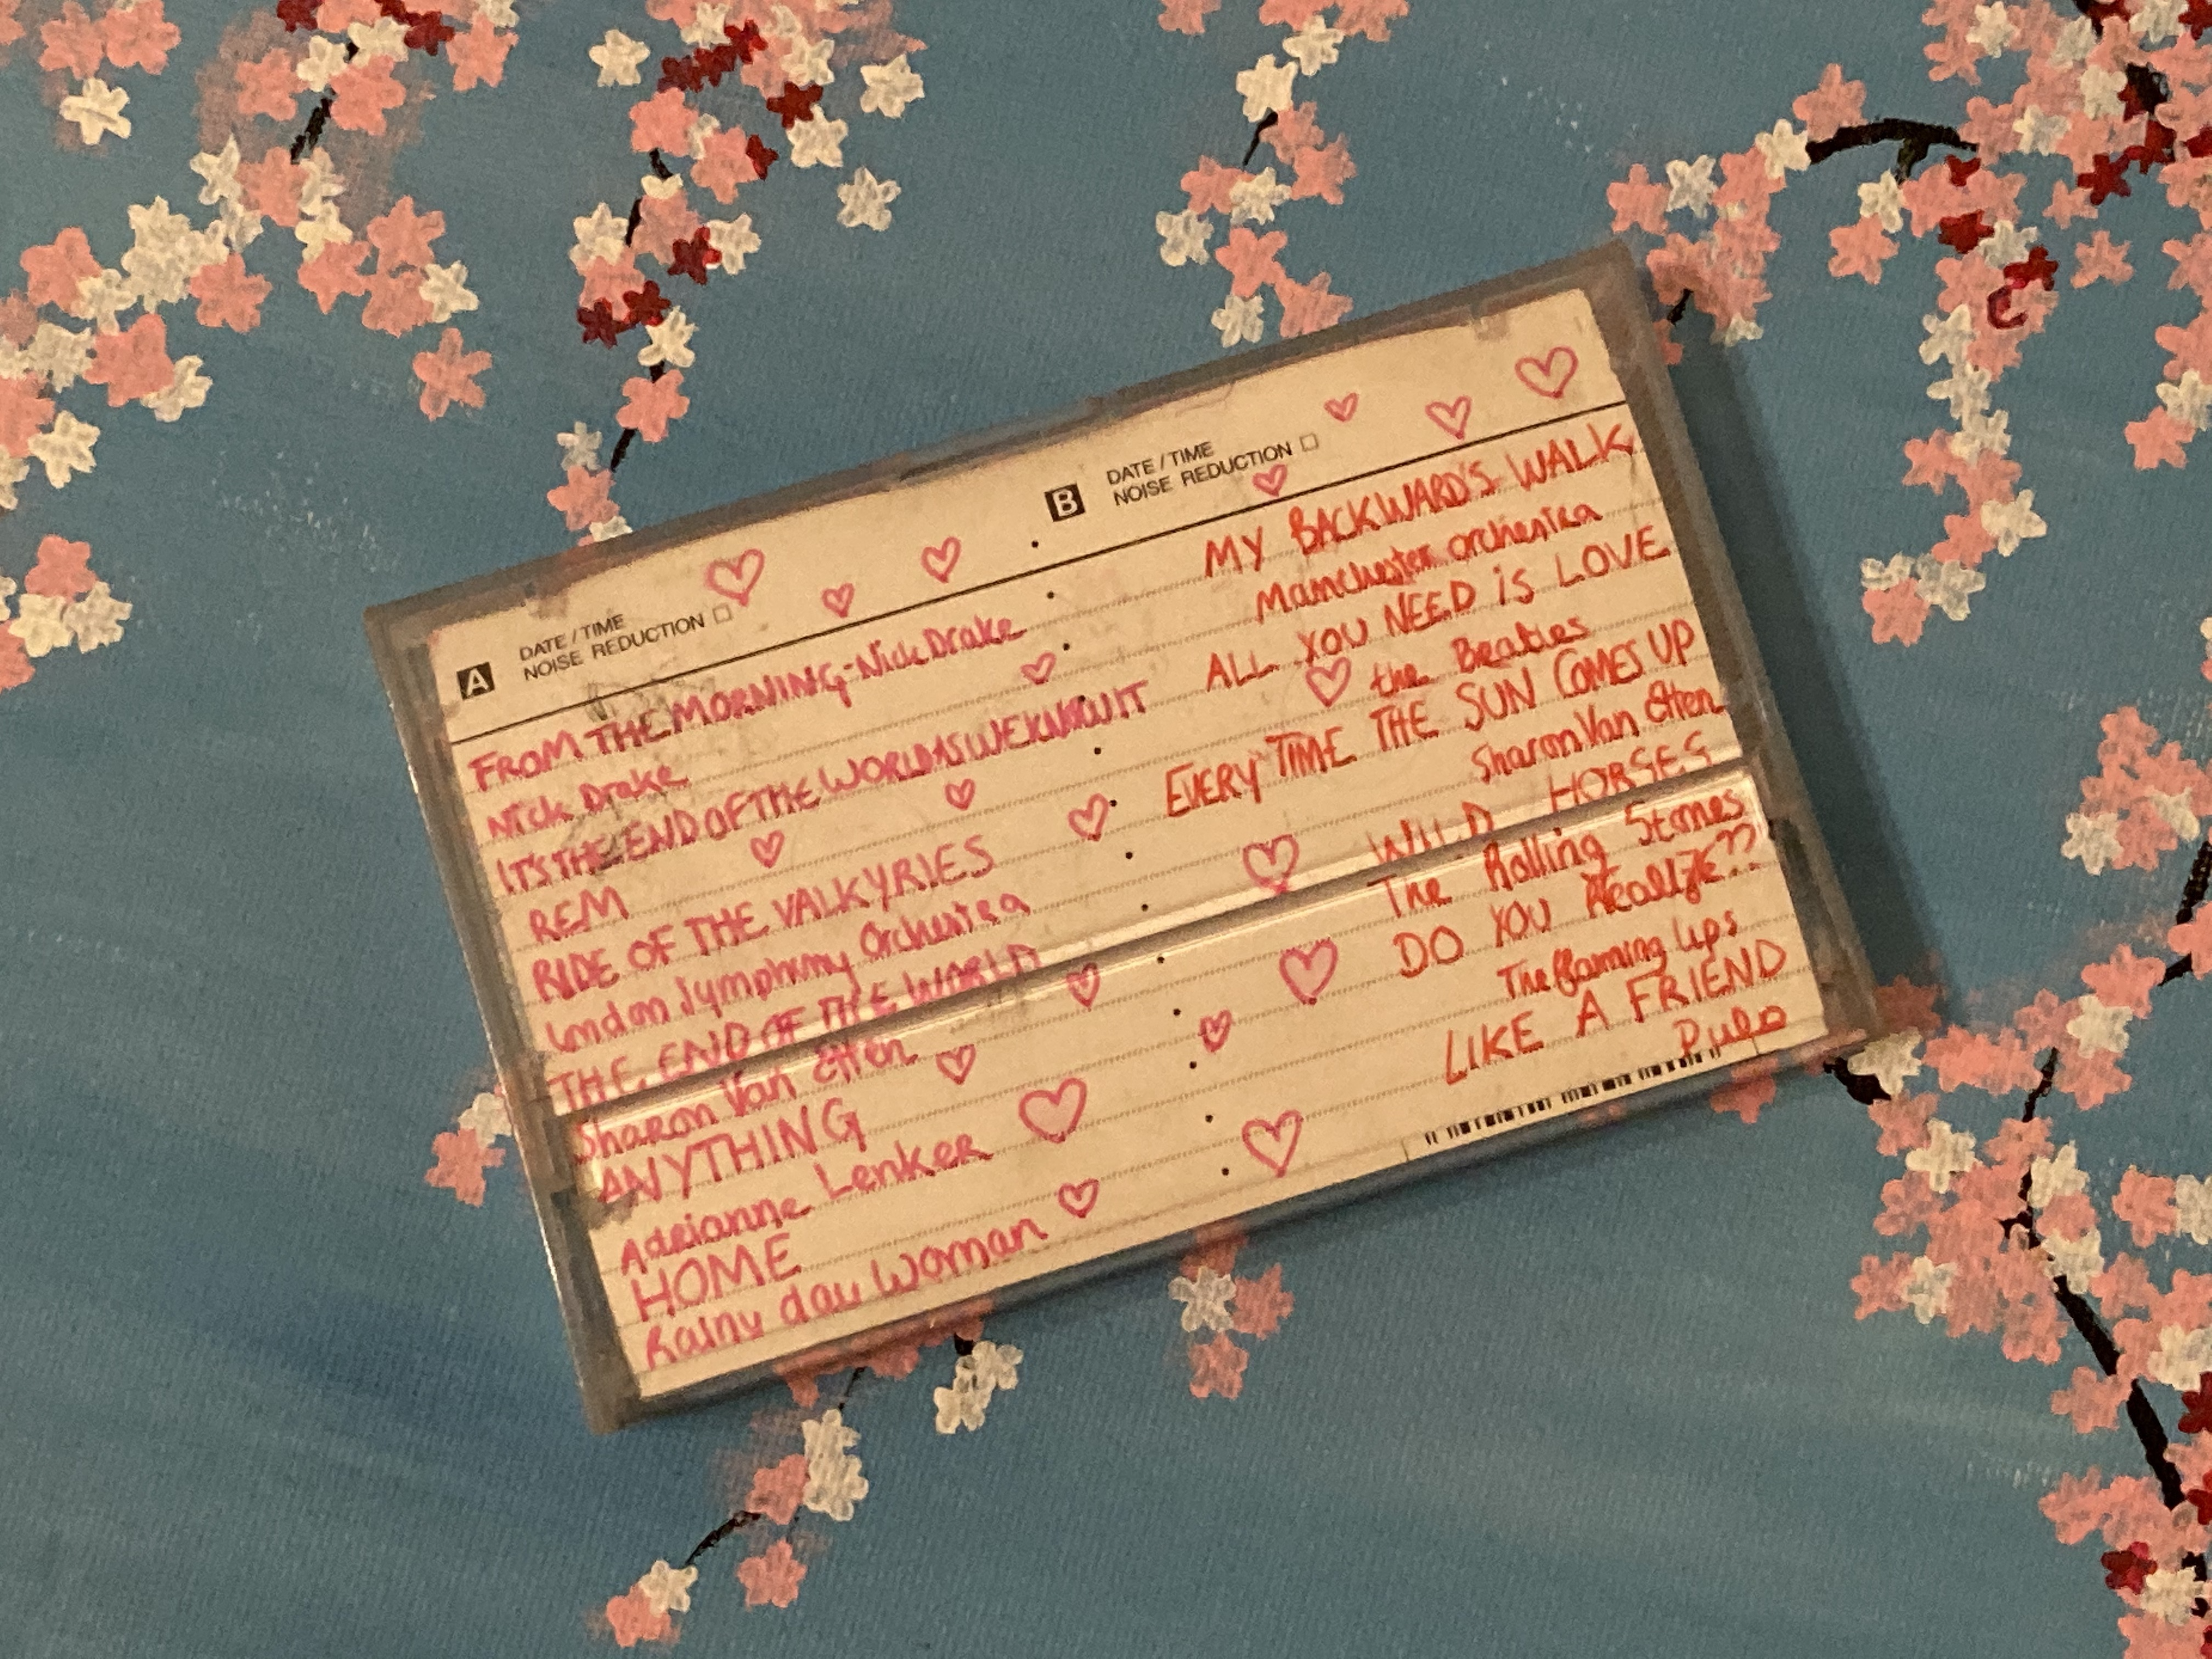 A
DATE / TIME
NOISE REDUCTION
FROM THE MORNING - Nick Drake
Nick Drake
IT'S THE END OF THE WORLD AS WE KNOW IT
REM
RIDE OF THE VALKYRIES
London Symphony Orchestra
THE END OF THE WORLD
Sharon Van Etten
ANYTHING
Adrianne Lenker
HOME
Rainy day Woman
B
DATE / TIME
NOISE REDUCTION
MY BACKWARD'S WALK
Manchester Orchestra
ALL YOU NEED iS LOVE
the Beatles
EVERY TIME THE SUN COMES UP
Sharon Van Etten
WILD HORSES
The Rolling Stones
DO YOU Realize??
The flaming lips
LIKE A FRIEND
Pulp